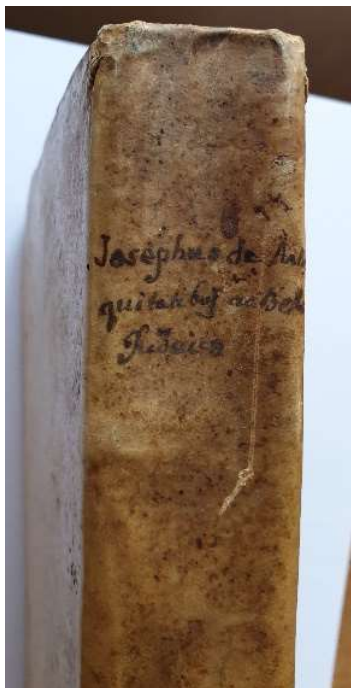 Josephus de Anti
quitatibus ac Bello
Judaico